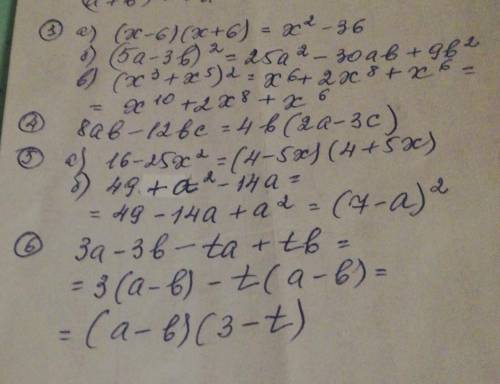 ③ а) (x-6)(x+6) = x² - 36
б) (5a-3b)² = 25a² - 30ab + 9b²
в) (x³+x⁵)² = x⁶ + 2x⁸ + x⁶ =
= x¹⁰ + 2x⁸ + x⁶
④ 8ab - 12bc = 4b(2a-3c)
⑤ а) 16-25x² = (4-5x)(4+5x)
б) 49 + a² - 14a =
= 49 - 14a + a² = (7-a)²
⑥ 3a - 3b - ta + tb =
= 3(a-b) - t(a-b) =
= (a-b)(3-t)